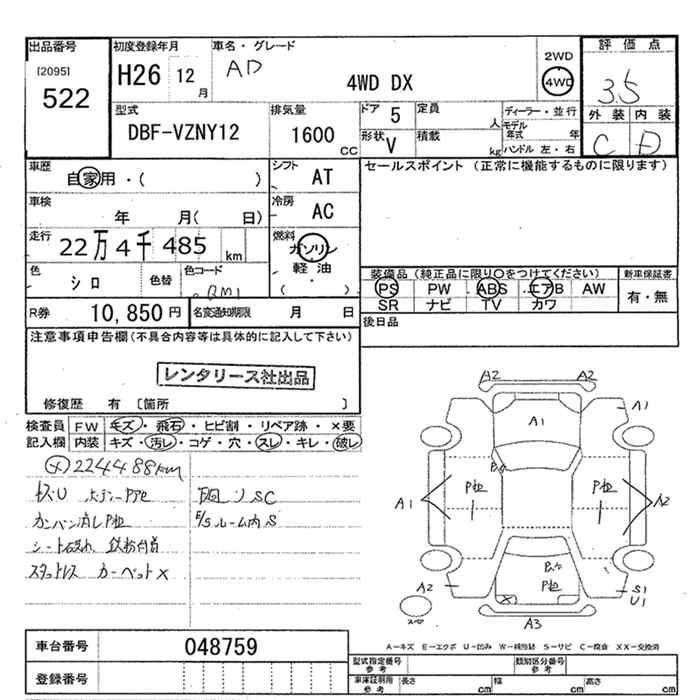 出品番号 初度登録年月 車名・グレード 2WD 評価点
[2095] H26 12月 AD 4WD DX 4WD 3.5
522
型式 排気量 ドア 5 定員 人 ディーラー・並行 外装 内装
DBF-VZNY12 1600 CC 形状 V 積載 kg モデル年式 年 C D
ハンドル 左・右
車歴 自家用・( ) シフト AT セールスポイント (正常に機能するものに限ります)
車検 年 月( 日) 冷房 AC
走行 22万4千485 km 燃料 ガソリン
軽油
( )
色 シロ 色替 色コード 装備品(純正品に限り○をつけてください) 新車保証書
PS PW ABS エアB AW 有・無
SR ナビ TV カワ
R券 10,850円 名変通知期限 月 日 後日品
注意事項申告欄(不具合内容等は具体的に記入して下さい)
レンタリース社出品
修復歴 有 〔箇所 〕
検査員 FW キズ・飛石・ヒビ割・リペア跡・×要
記入欄 内装 キズ・汚レ・コゲ・穴・スレ・キレ・破レ
224488km
シート破れ
スタットレス カーペット×
A2 A2
A1 A1
A1 A2
A2 S1
U1
A3
A-キズ E-エクボ U-凹み W-補修跡 S-サビ C-腐食 XX-交換済
車台番号 048759
登録番号
型式指定番号 参考 類別区分番号 参考
車庫証明用 参考 長さ cm 幅 cm 高さ cm